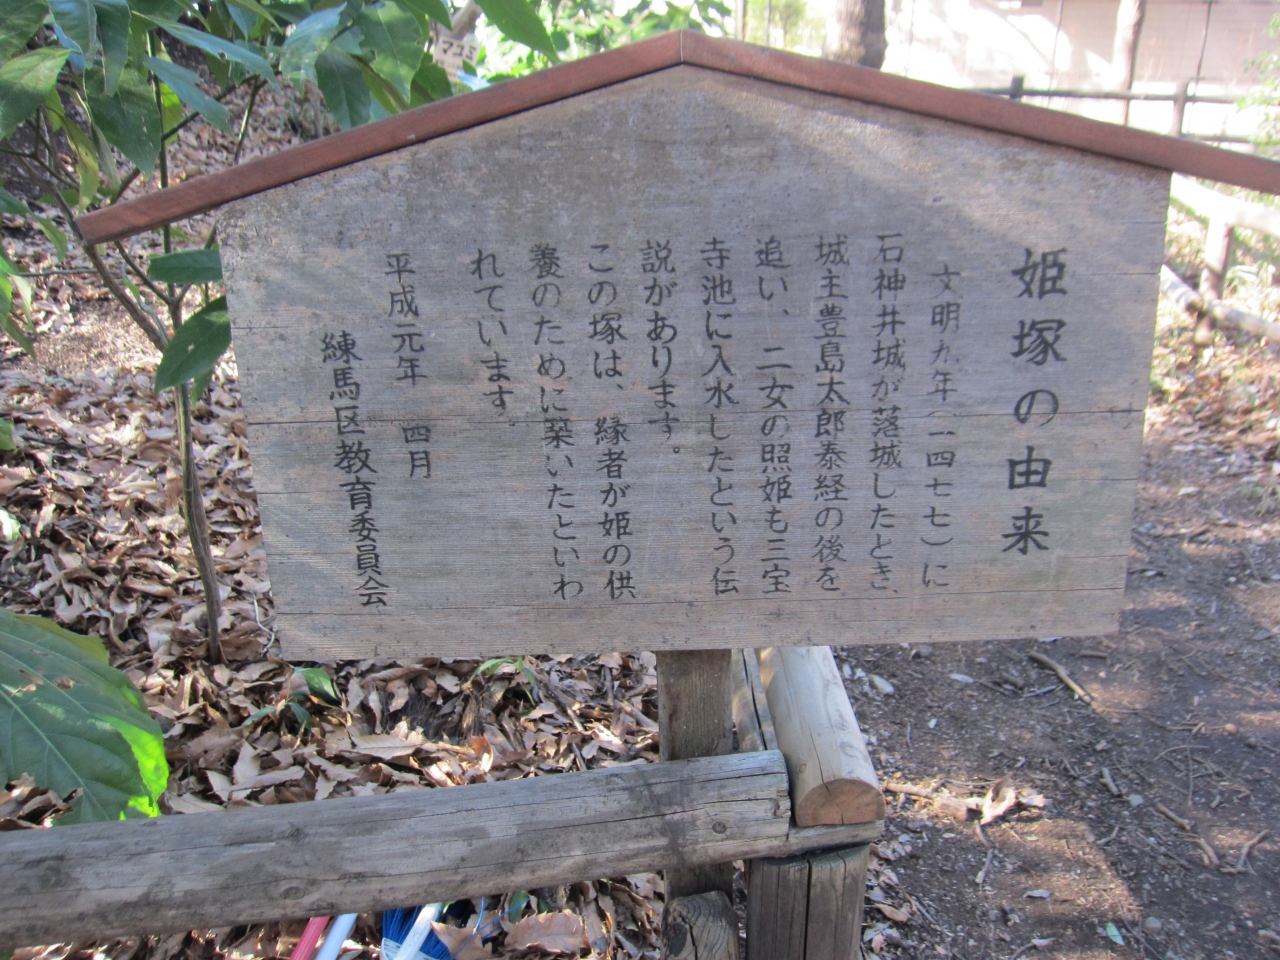 姫塚の由来
文明九年(一四七七)に
石神井城が落城したとき、
城主豊島太郎泰経の後を
追い、二女の照姫も三宝
寺池に入水したという伝
説があります。
この塚は、縁者が姫の供
養のために築いたといわ
れています。
平成元年 四月
練馬区教育委員会
マユミ